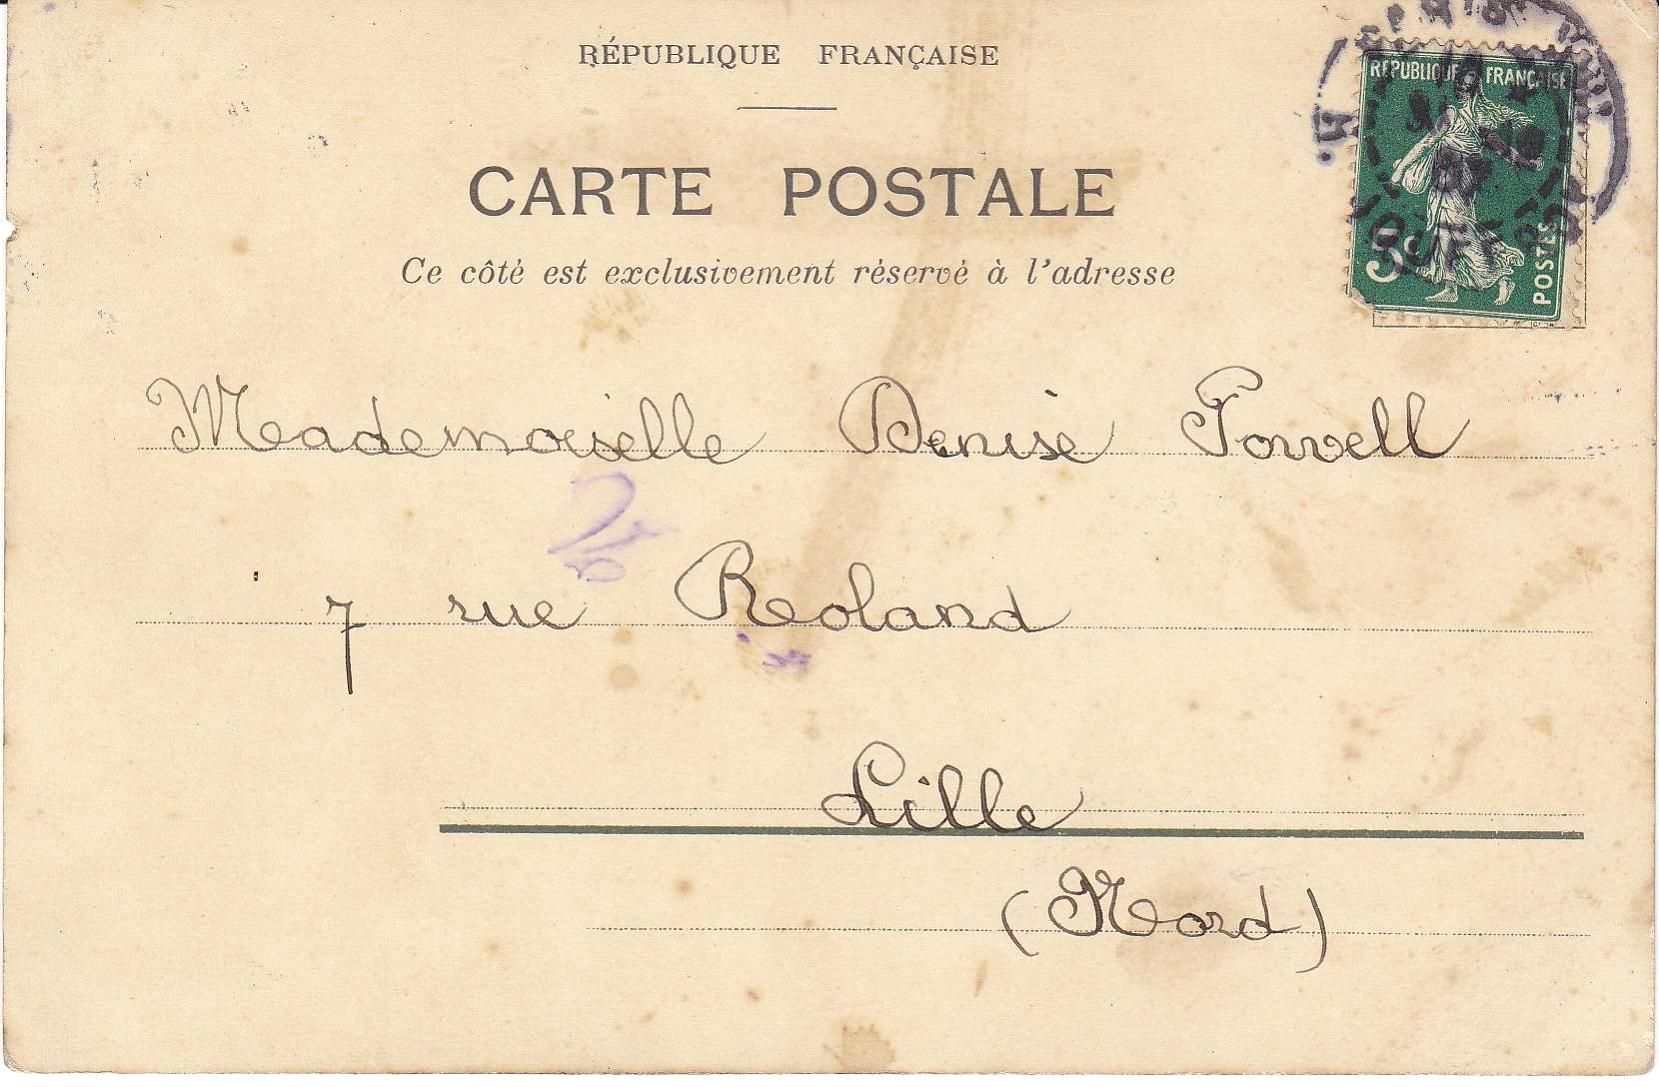 RÉPUBLIQUE FRANÇAISE
CARTE POSTALE
Ce côté est exclusivement réservé à l'adresse
RÉPUBLIQUE FRANÇAISE
5c
POSTES
Mademoiselle Denise
7 rue Roland
Lille
(Nord)